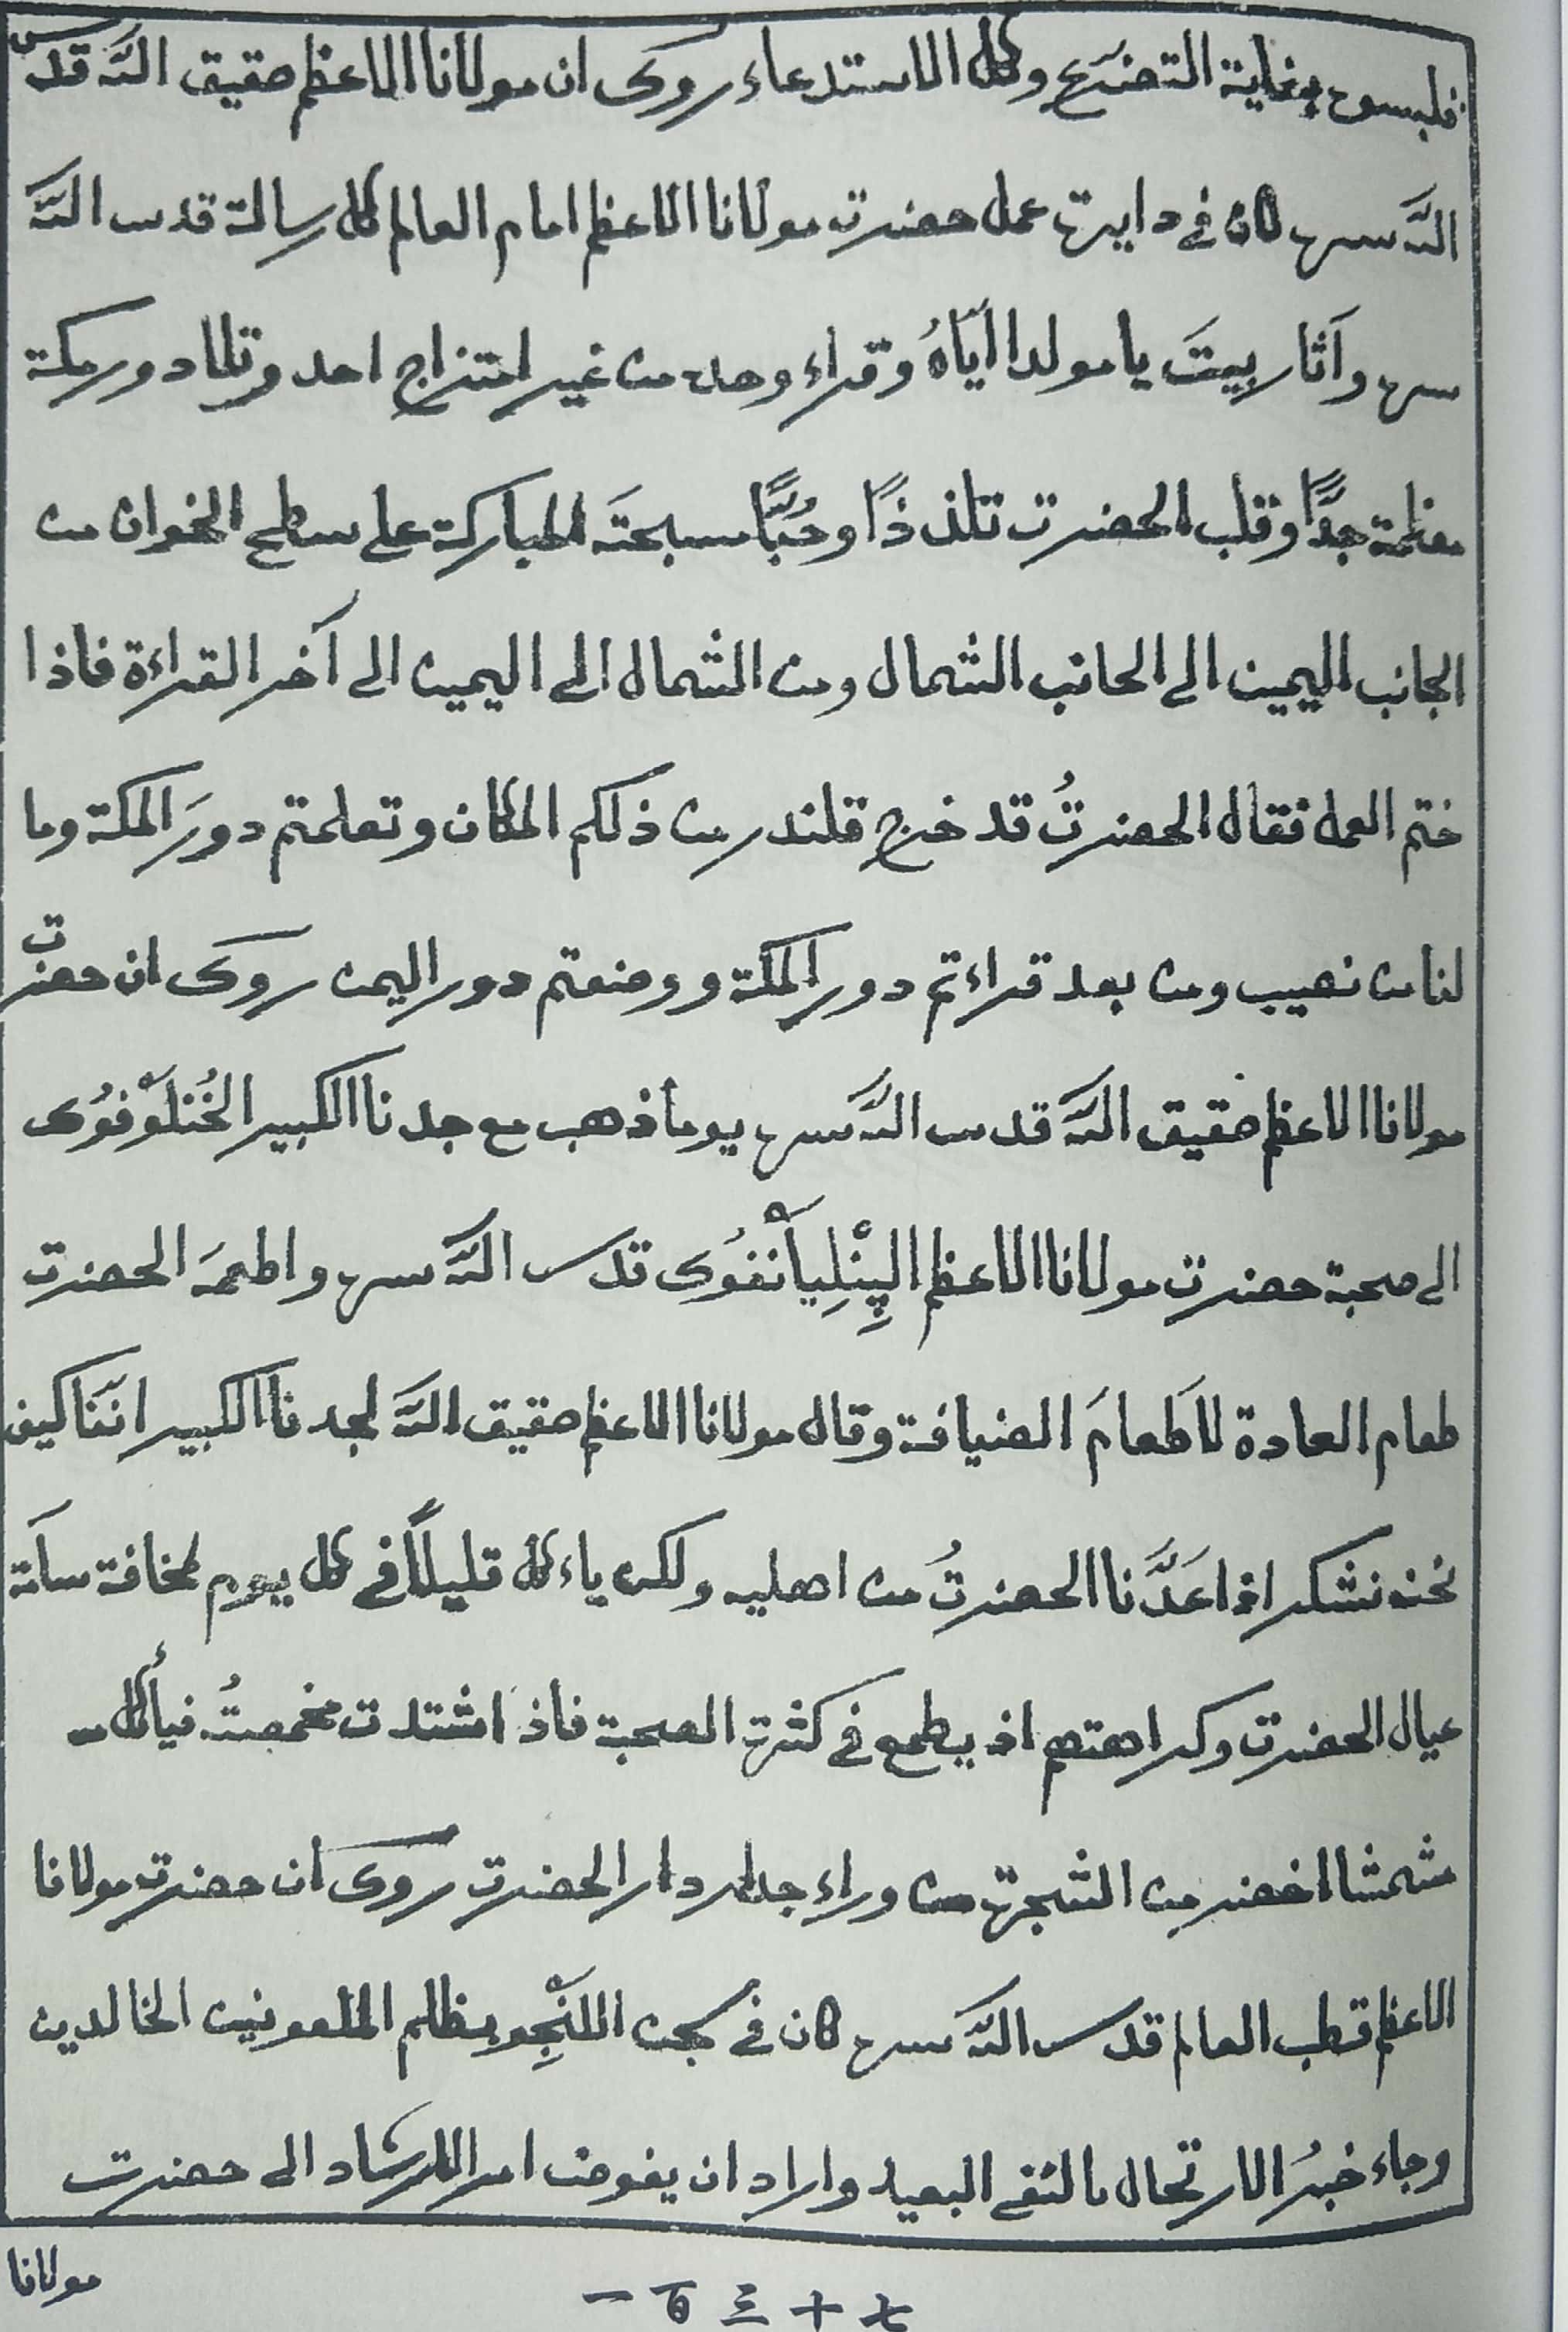 فلبسوح بغاية التضرع وكل الاستدعاء روى ان مولانا الاعظم حقيق الله قدس
الله سره كان في دايرة عمل حضرت مولانا الاعظم امام العالم كل رسالة قدس الله
سره وآثار بيتَ يا مولدا أياهُ وقراء وحده من غير امتزاج احد وتلا دور مكة
معظمة جدًّا وقلب الحضرت تلذذًا وحُبًّا سبحتَه المباركة على سطح الخوان من
الجانب اليمين الى الحانب الشمال ومن الشمال الى اليمين الى آخر القراءة فاذا
ختم العمل فقال الحضرتُ قد خرج قلندر من ذلكم المكان وتعلمتم دورَ المكة وما
لنا من نصيب ومن بعد قراءتم دور المكة ووضعتم دور اليمن روى ان حضرت
مولانا الاعظم حقيق الله قدس الله سره يوما ذهب مع جدنا الكبير الخُنَلَوْفُوى
الى صحبة حضرت مولانا الاعظم الپِنْلِيَانْفُوى قدس الله سره واطعمَه الحضرت
طعام العادة لا طعامَ الضيافة وقال مولانا الاعظم حقيق الله لجدنا الكبير انَنا كيف
نحن نشكر اذا عَدَّنا الحضرتُ من اهليه ولكن ياءكل قليلًا في كل يوم لمخافة سآمة
عيال الحضرت وكراهتهم اذ يطمع في كثرة الصحبة فاذا اشتدت مخمصتُه فيأكل
مشمشا اخضر من الشجرة من وراء جدار دار الحضرت روى ان حضرت مولانا
الاعظم قطب العالم قدس الله سره كان في سجن اللَنْجِو بظلم الملعونين الخالدين
وجاء خبرُ الارتحال بالنفي البعيد واراد ان يفوض امر الارشاد الى حضرت
مولانا
一百三十七